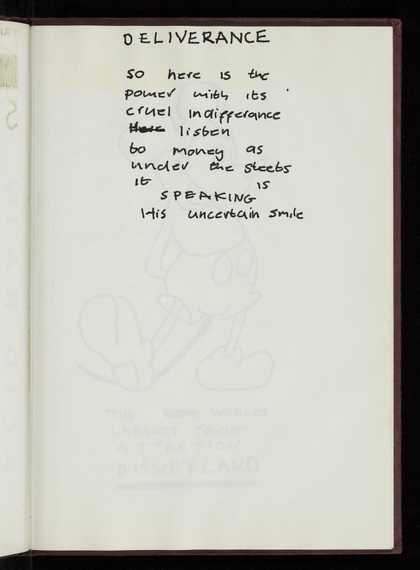 DELIVERANCE
so here is the
power with its
cruel indifferance
listen
to money as
under the steets
it is
SPEAKING
His uncertain smile
THE WORLDS
LARGEST
ATTRACTION
DISNEYLAND